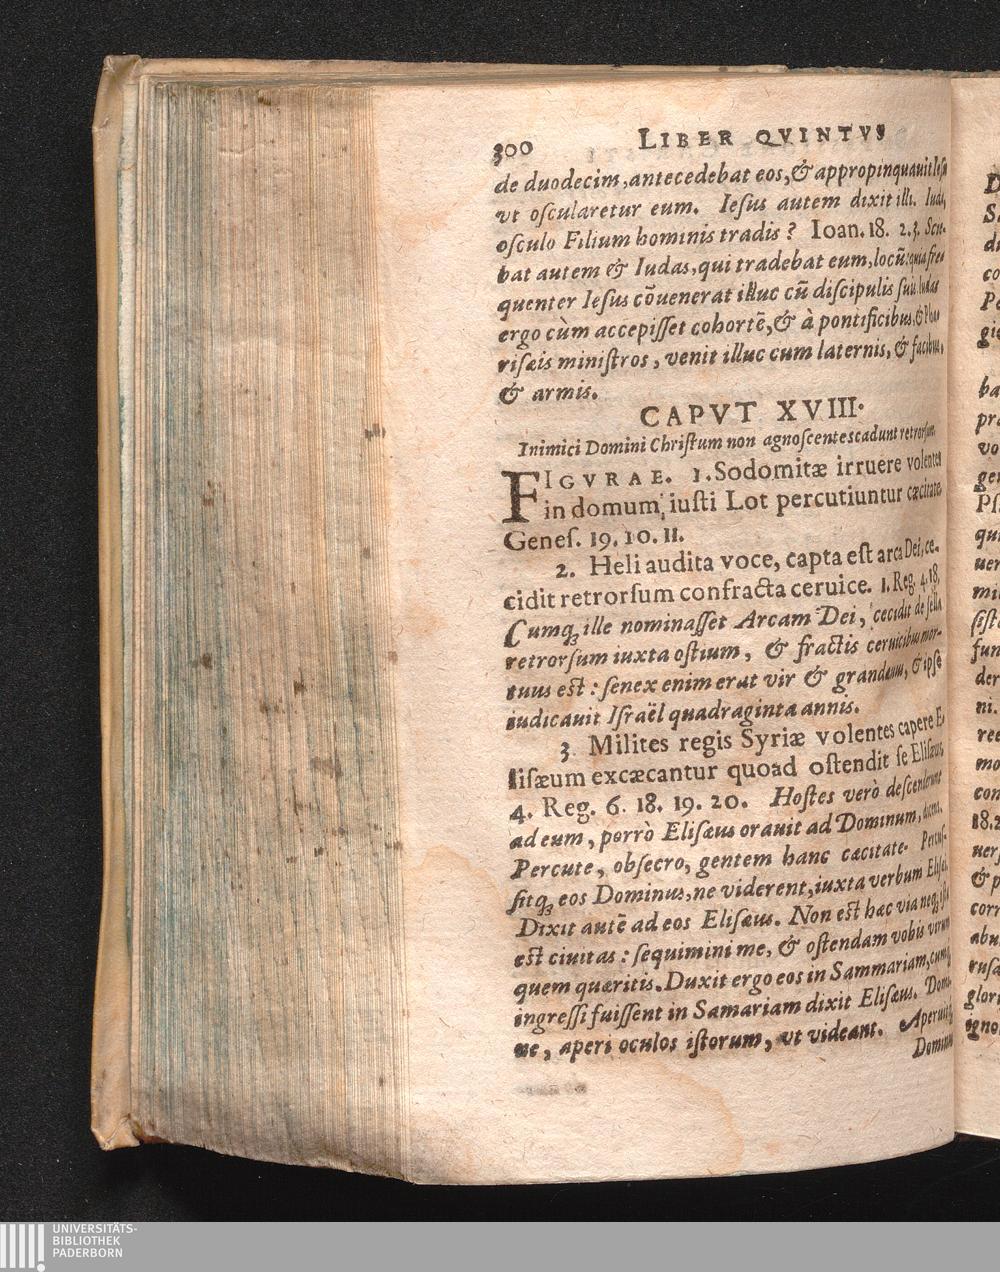 300 LIBER QVINTVS
de duodecim, antecedebat eos, & appropinquauit Iesu
vt oscularetur eum. Iesus autem dixit illi. Iuda,
osculo Filium hominis tradis? Ioan. 18. 2.3. Scie-
bat autem & Iudas, qui tradebat eum, locū: quia fre
quenter Iesus cōuenerat illuc cū discipulis suis. Iudas
ergo cùm accepisset cohortē, & à pontificibus, & Pha
risæis ministros, venit illuc cum laternis, & facibus,
& armis.
CAPVT XVIII.
Inimici Domini Christum non agnoscentes cadunt retrorsum.
FIGVRAE. 1. Sodomitæ irruere volentes
in domum iusti Lot percutiuntur cæcitate.
Genes. 19. 10. 11.
2. Heli audita voce, capta est arca Dei, ce-
cidit retrorsum confracta ceruice. 1. Reg. 4. 18.
Cumq; ille nominasset Arcam Dei, cecidit de sella
retrorsum iuxta ostium, & fractis ceruicibus mor-
tuus est: senex enim erat vir & grandæuus, & ipse
iudicauit Israël quadraginta annis.
3. Milites regis Syriæ volentes capere E-
lisæum excæcantur quoad ostendit se Elisæus,
4. Reg. 6. 18. 19. 20. Hostes verò descenderunt
ad eum, porrò Elisæus orauit ad Dominum, dicens.
Percute, obsecro, gentem hanc cæcitate. Percus-
sitq; eos Dominus, ne viderent, iuxta verbum Elisæi.
Dixit autē ad eos Elisæus. Non est hæc via neq; ista
est ciuitas: sequimini me, & ostendam vobis virum
quem quæritis. Duxit ergo eos in Sammariam, cumq;
ingressi fuissent in Samariam dixit Elisæus. Domi-
ne, aperi oculos istorum, vt videant. Aperuitq;
Dominus
D
S
di
co
P
gi
ba
pr
vo
ge
Ps
qu
uer
mi
sist
fun
der
ni.
ree
mo
con
18.2
uer
& p
corr
abu
rusa
glori
igno
UNIVERSITÄTS-
BIBLIOTHEK
PADERBORN